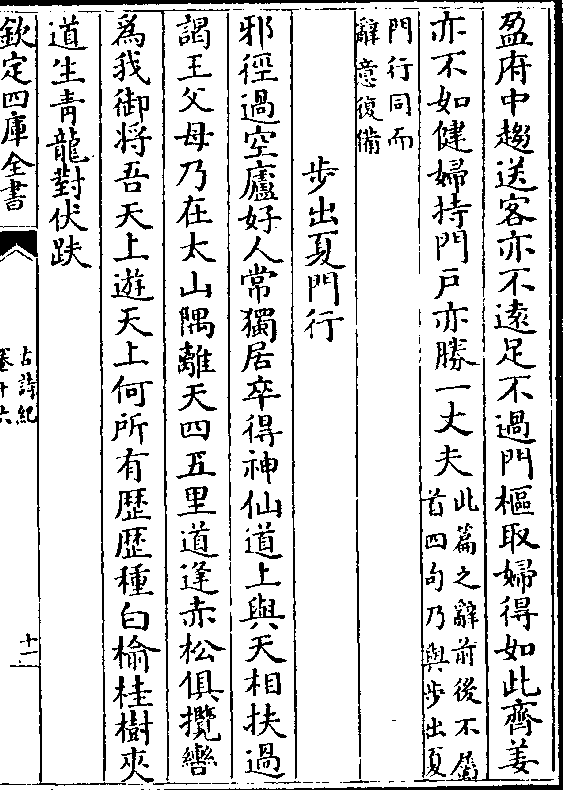 盈府中趨送客亦不逺足不過門樞取婦得如此齊姜
亦不如健婦持門戸亦勝一丈夫
此篇之辭前後不屬
首四句乃與步出夏
門行同而
辭意復備
步出夏門行
邪徑過空廬好人常獨居卒得神仙道上與天相扶過
謁王父母乃在太山隅離天四五里道逢赤松俱攬轡
為我御将吾天上遊天上何所有歴歴種白榆桂樹夾
道生青龍對伏趺
欽定四庫全書
古詩紀
卷十六
十一